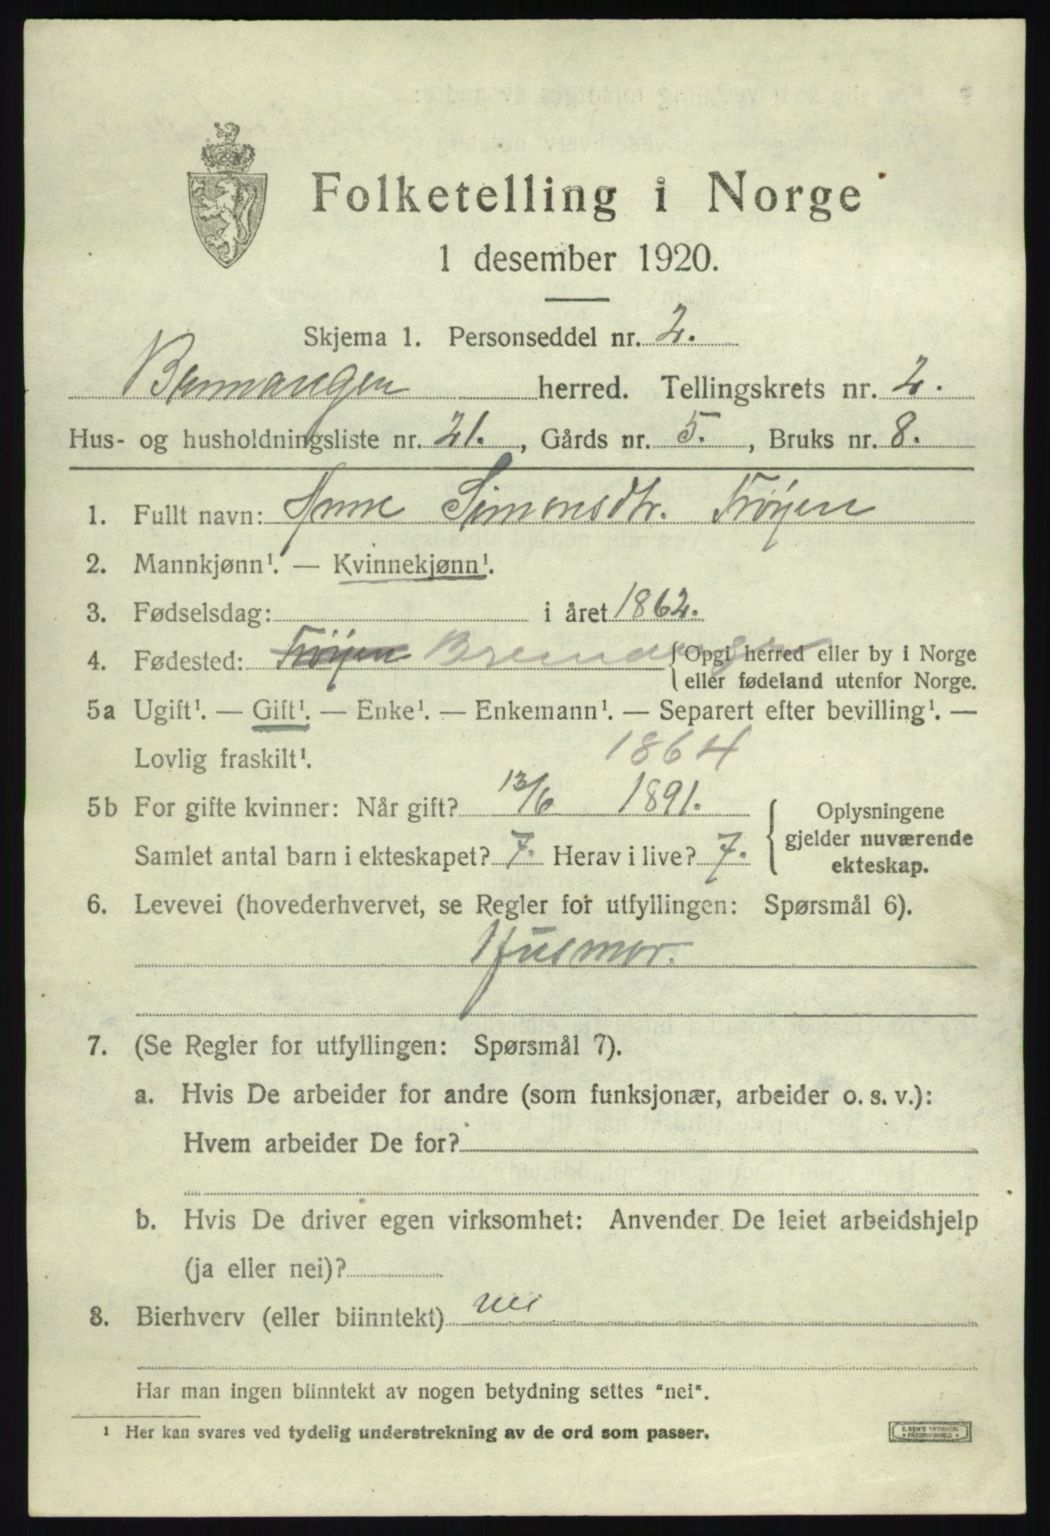 Folketelling i Norge
1 desember 1920.
Skjema 1. Personseddel nr. 2.
Bremangen herred. Tellingskrets nr. 2.
Hus- og husholdningsliste nr. 21. , Gårds nr. 5. , Bruks nr. 8.
1. Fullt navn: Anne Simonsdtr. Frøyen
2. Mannkjønn¹. — Kvinnekjønn¹.
3. Fødselsdag: i året 1862.
4. Fødested: Frøyen Bremanger {Opgi herred eller by i Norge
eller fødeland utenfor Norge.
5a Ugift¹. — Gift¹. — Enke¹. — Enkemann¹. — Separert efter bevilling¹. —
Lovlig fraskilt¹. 1864
5b For gifte kvinner: Når gift? 13/6 1891.
Samlet antal barn i ekteskapet? 7. Herav i live? 7.
Oplysningene
gjelder nuværende
ekteskap.
6. Levevei (hovederhvervet, se Regler for utfyllingen: Spørsmål 6).
Husmor.
7. (Se Regler for utfyllingen: Spørsmål 7).
a. Hvis De arbeider for andre (som funksjonær, arbeider o. s. v.):
Hvem arbeider De for?
b. Hvis De driver egen virksomhet: Anvender De leiet arbeidshjelp
(ja eller nei)?
8. Bierhverv (eller biinntekt) nei
Har man ingen biinntekt av nogen betydning settes "nei".
¹ Her kan svares ved tydelig understrekning av de ord som passer.